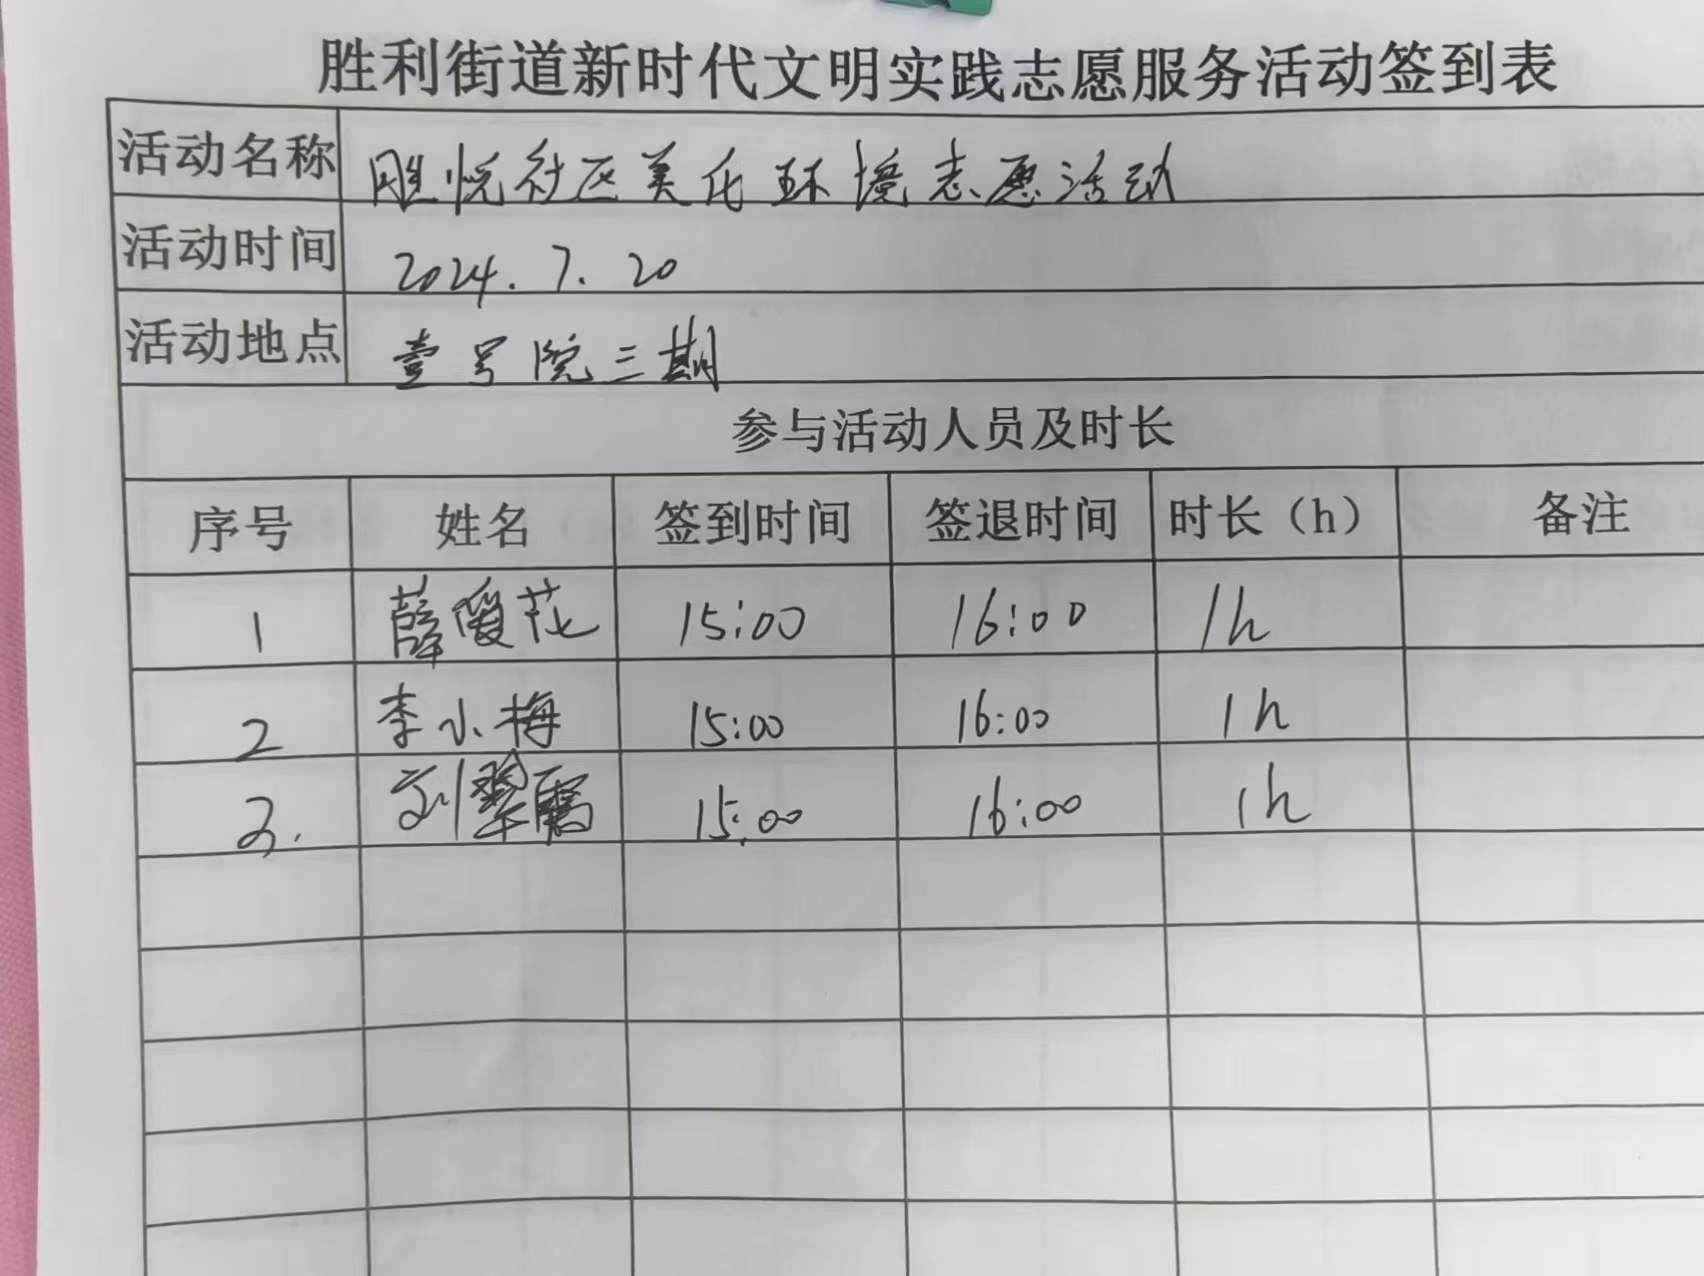 胜利街道新时代文明实践志愿服务活动签到表
活动名称 胜悦社区美化环境志愿活动
活动时间 2024.7.20
活动地点 壹号院三期
参与活动人员及时长
序号 姓名 签到时间 签退时间 时长（h） 备注
1 薛爱花 15:00 16:00 1h
2 李小梅 15:00 16:00 1h
3. 刘翠霞 15:00 16:00 1h